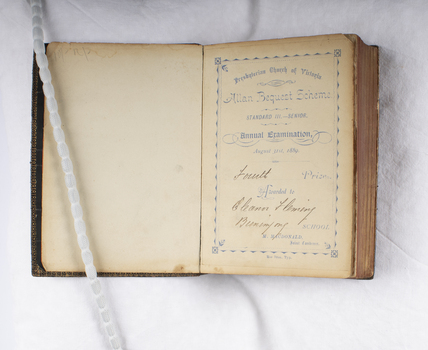 Presbyterian Church of Victoria
Allan Bequest Scheme
STANDARD III.—SENIOR.
Annual Examination,
August 31st, 1889
Fourth Prize,
Awarded to
Fleming
Buninyong SCHOOL